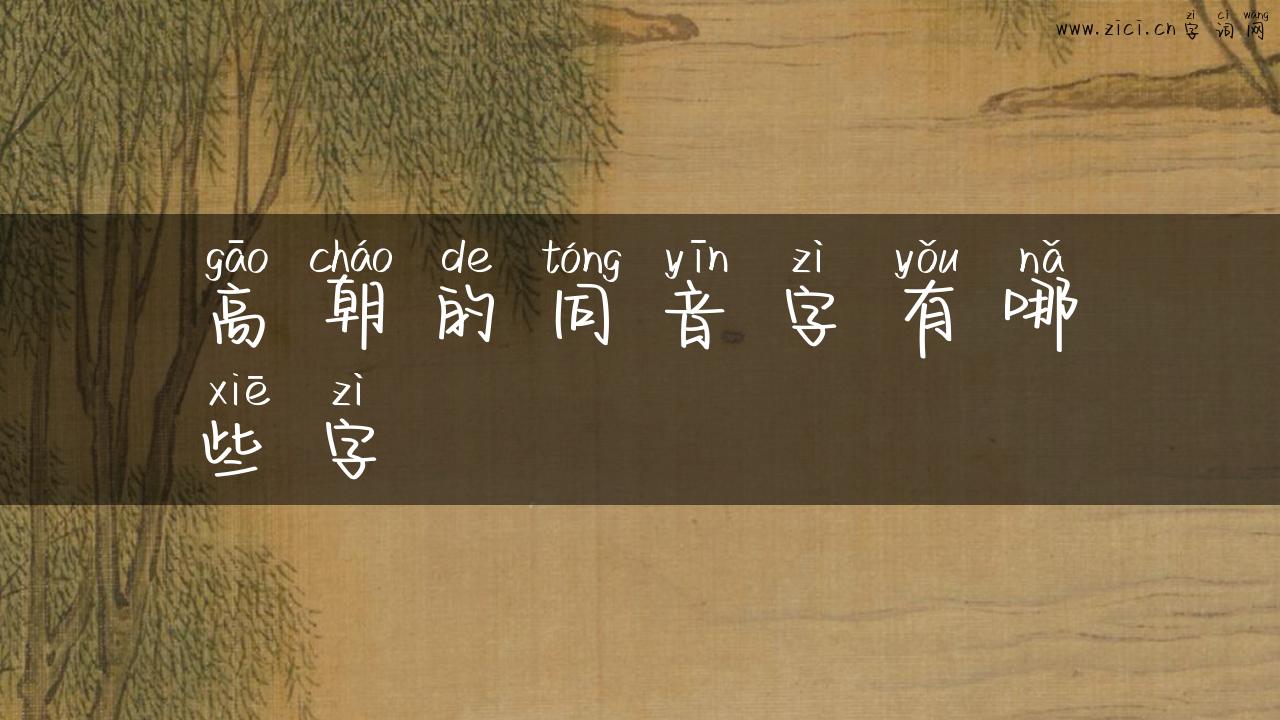 zì cí wǎng
www.zici.cn 字词网
gāo cháo de tóng yīn zì yǒu nǎ
高朝的同音字有哪
xiē zì
些字